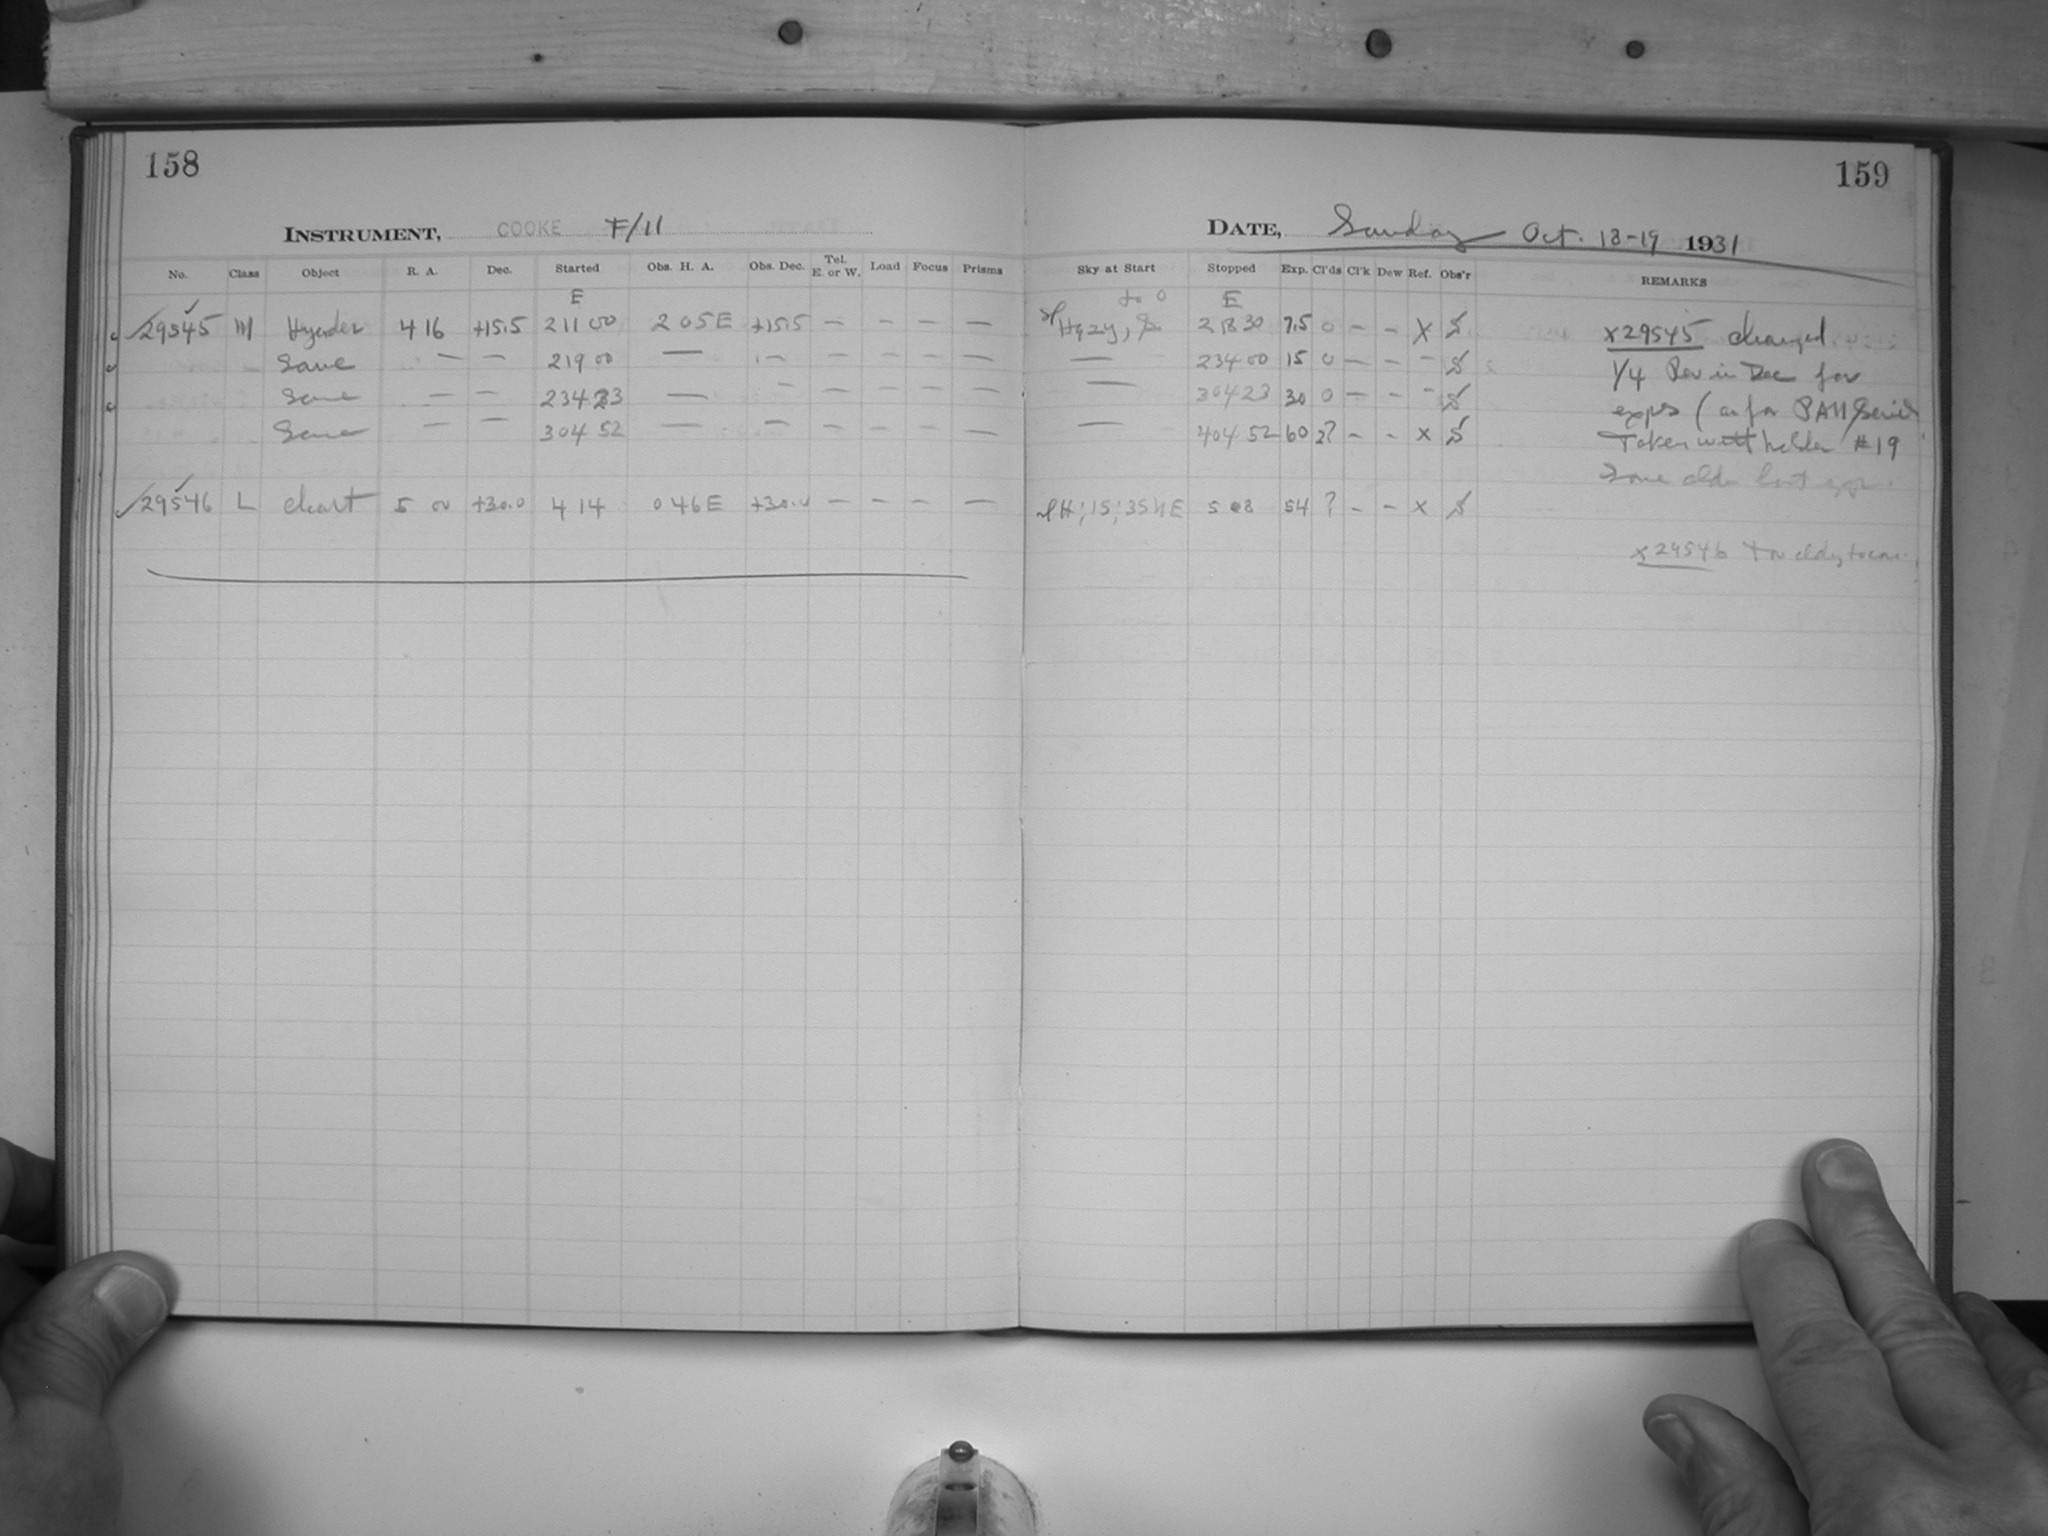 158
INSTRUMENT, COOKE F/11
No. Class Object R. A. Dec. Started Obs. H. A. Obs. Dec. Tel. E. or W. Load Focus Prisms
E
29545 M Hyades 4 16 +15.5 2 11 00 2 05 E +15.5 — — — —
Same — — 2 19 00 — — — — — —
Same — — 2 34 23 — — — — — —
Same — — 3 04 52 — — — — — —
29546 L Chart 5 00 +30.0 4 14 0 46 E +30.0 — — — —
159
DATE, Sunday Oct. 18-19 1931
Sky at Start Stopped Exp. Cl'ds Cl'k Dew Ref. Obs'r REMARKS
E
Hazy, 2 18 30 7.5 0 — — X
— 2 34 00 15 0 — — —
— 3 04 23 30 0 — — —
— 4 04 52 60 2? — — X
5 08 54 ? — — X
X29545 changed
1/4 Rev in Dec for
exps (as for PAH Series
Taken with holder #19
Some cldy last exp.
X29546 Too cldy to cont.